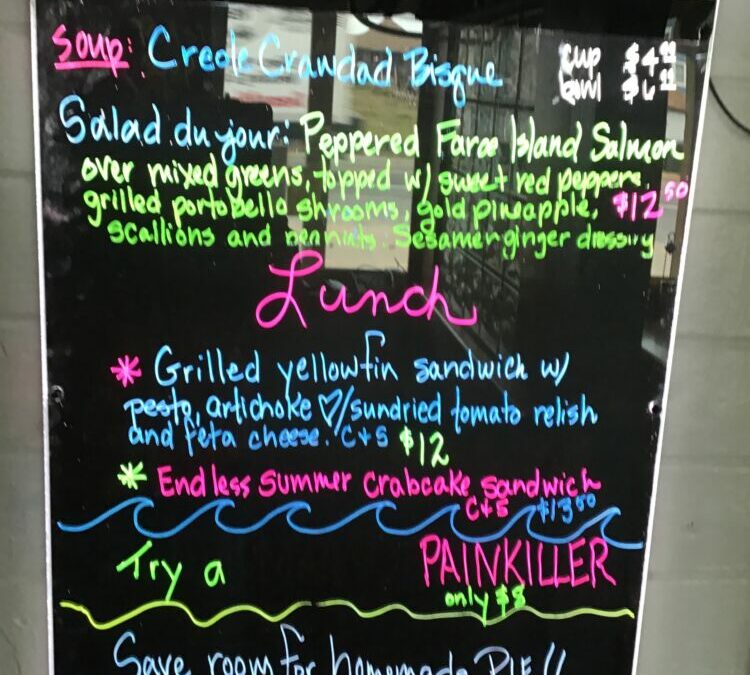 Soup: Creole Crawdad Bisque cup $4.00
bowl $6.00
Salad du jour: Peppered Faroe Island Salmon
over mixed greens, topped w/ sweet red peppers,
grilled portobello shrooms, gold pineapple, $12.50
scallions and peanuts. Sesame ginger dressing
Lunch
* Grilled yellowfin sandwich w/
pesto, artichoke ♡/sundried tomato relish
and feta cheese. C+S $12
* Endless Summer Crabcake Sandwich
C+S $13.50
Try a PAINKILLER
only $8
Save room for homemade PIE!!